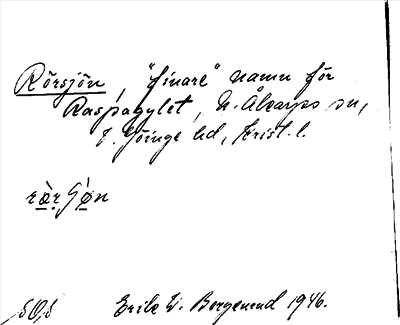 Rörsjön, "finare" namn för
Raspagylet, N. Åkarps sn,
V. Göinge hd, Krist. l.
SOS Erik W. Bergerud 1946.